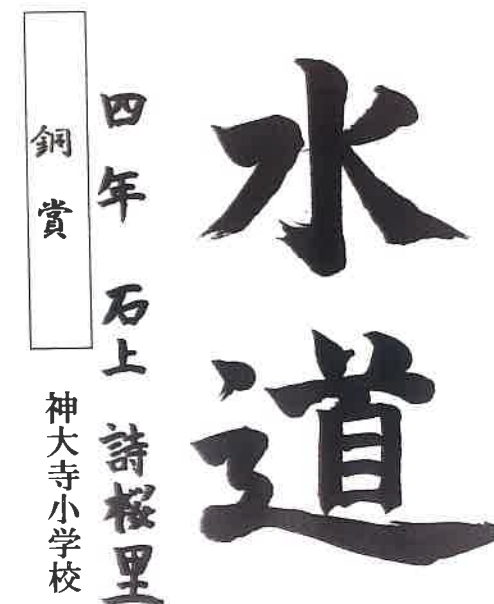 水道
四年 石上 詩桜里
銅賞
神大寺小学校